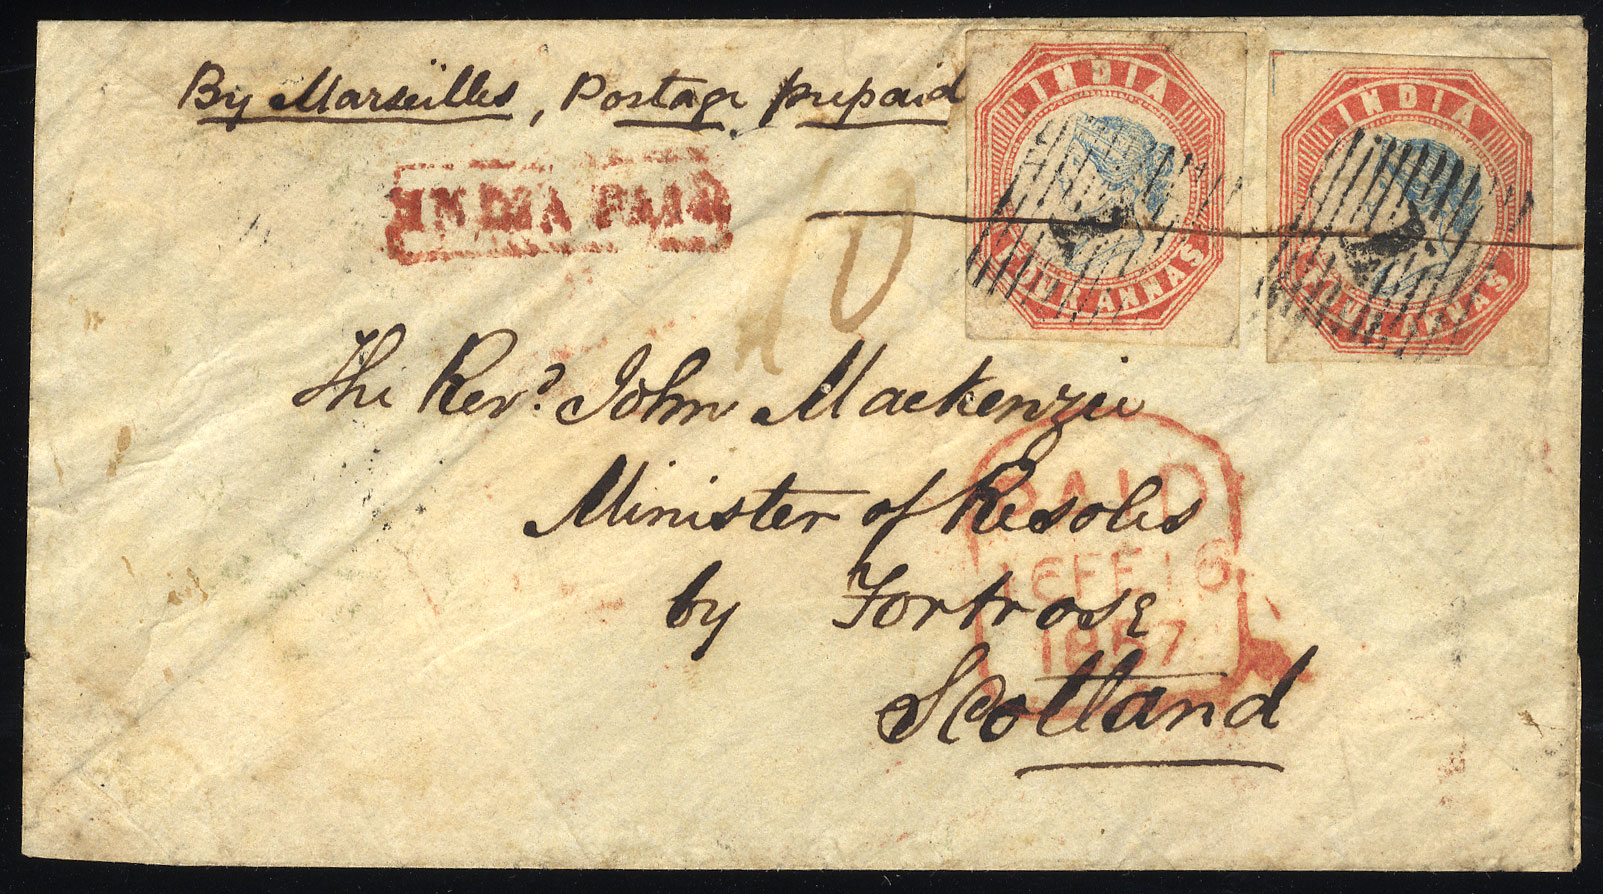 By Marseilles, Postage prepaid
INDIA
FOUR ANNAS
INDIA
FOUR ANNAS
INDIA PAID
10
The Revd. John Mackenzie
Minister of Resolis
by Fortrose
Scotland
PAID
16 FE 16
1857